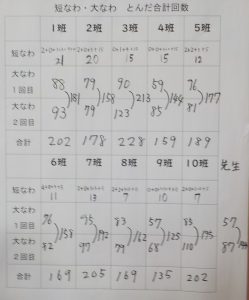 短なわ・大なわ とんだ合計回数
1班 2班 3班 4班 5班
短なわ
21 20 15 15 12
大なわ 1回目 88 79 90 59 76
181 158 213 144 177
大なわ 2回目 93 79 123 85
合計 202 178 228 159 189
6班 7班 8班 9班 10班 先生
短なわ
11 13 7 10 7
大なわ 1回目 76 95 83 57 57
158 192 162 125 195 144
大なわ 2回目 82 97 79 68 87
合計 169 205 169 135 202